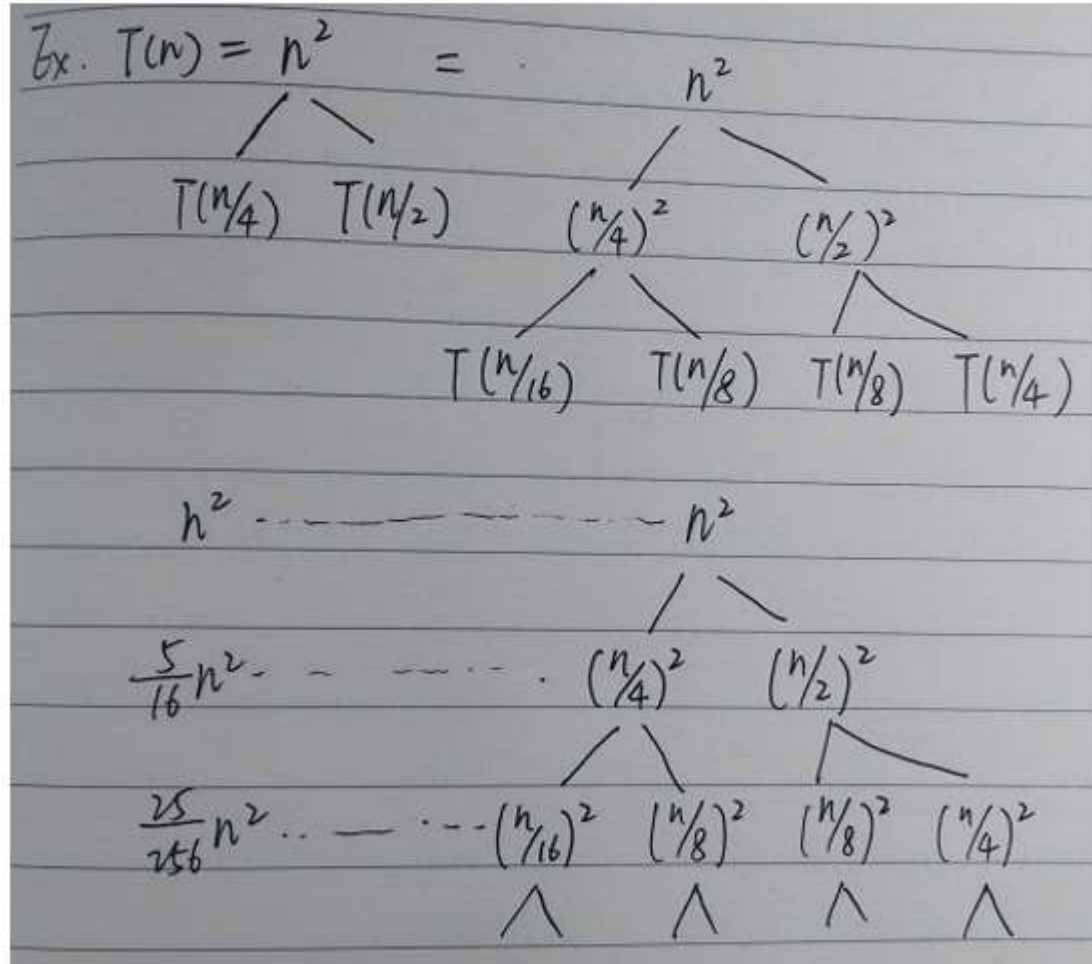 Ex. T(n) = n² = n²
T(n/4) T(n/2) (n/4)² (n/2)²
T(n/16) T(n/8) T(n/8) T(n/4)
n² n²
5/16 n² (n/4)² (n/2)²
25/256 n² (n/16)² (n/8)² (n/8)² (n/4)²